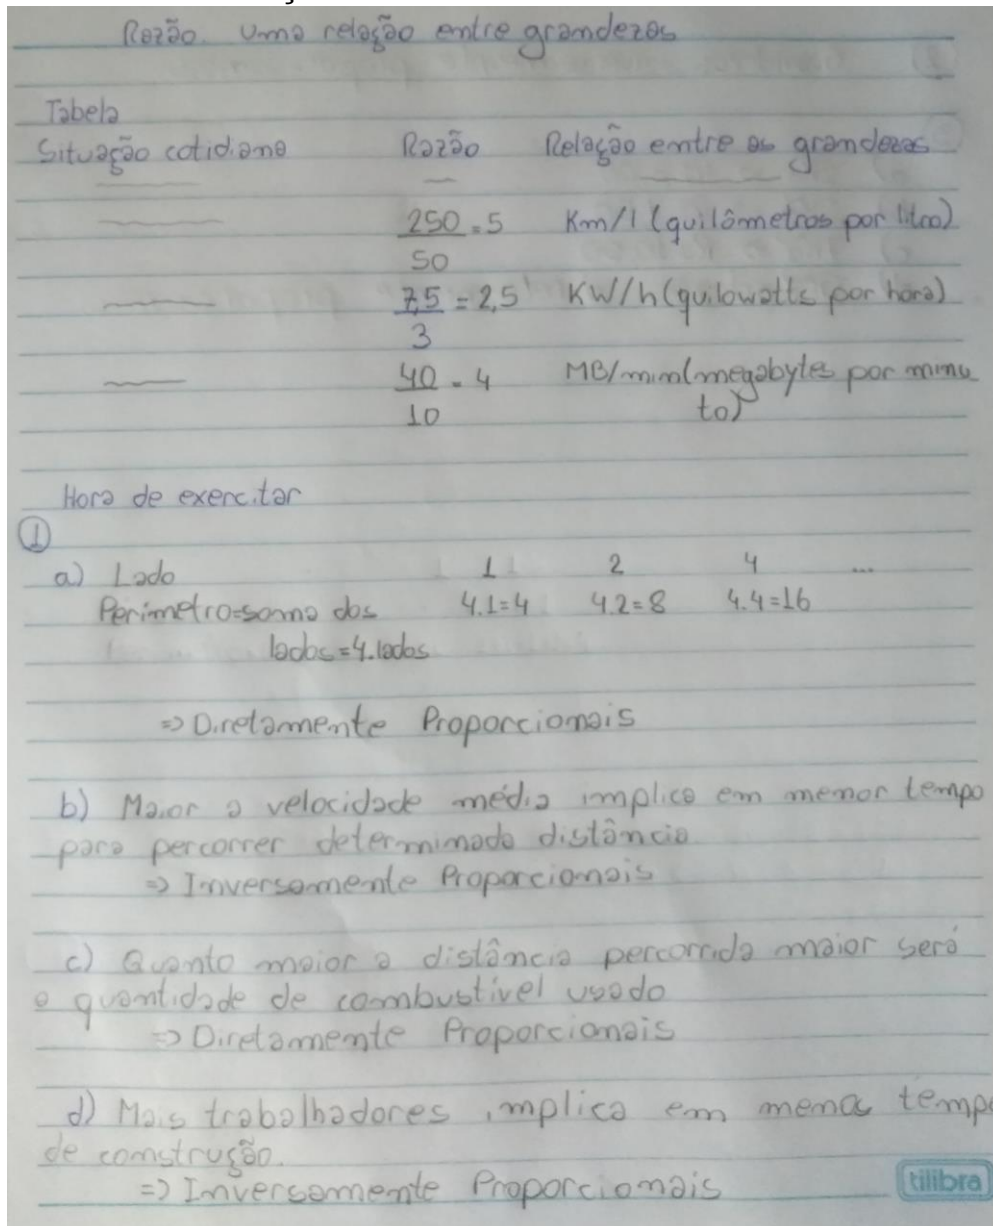 Razão. Uma relação entre grandezas
Tabela
Situação cotidiana Razão Relação entre as grandezas
250 = 5 Km/l (quilômetros por litro)
50
7,5 = 2,5 KW/h (quilowatts por hora)
3
40 = 4 MB/min (megabytes por minu
10 to)
Hora de exercitar
1
a) Lado 1 2 4 ...
Perímetro=soma dos 4.1=4 4.2=8 4.4=16
lados=4.lados
=> Diretamente Proporcionais
b) Maior a velocidade média implica em menor tempo
para percorrer determinada distância
=> Inversamente Proporcionais
c) Quanto maior a distância percorrida maior será
a quantidade de combustível usado
=> Diretamente Proporcionais
d) Mais trabalhadores implica em menos tempo
de construção.
=> Inversamente Proporcionais
tilibra